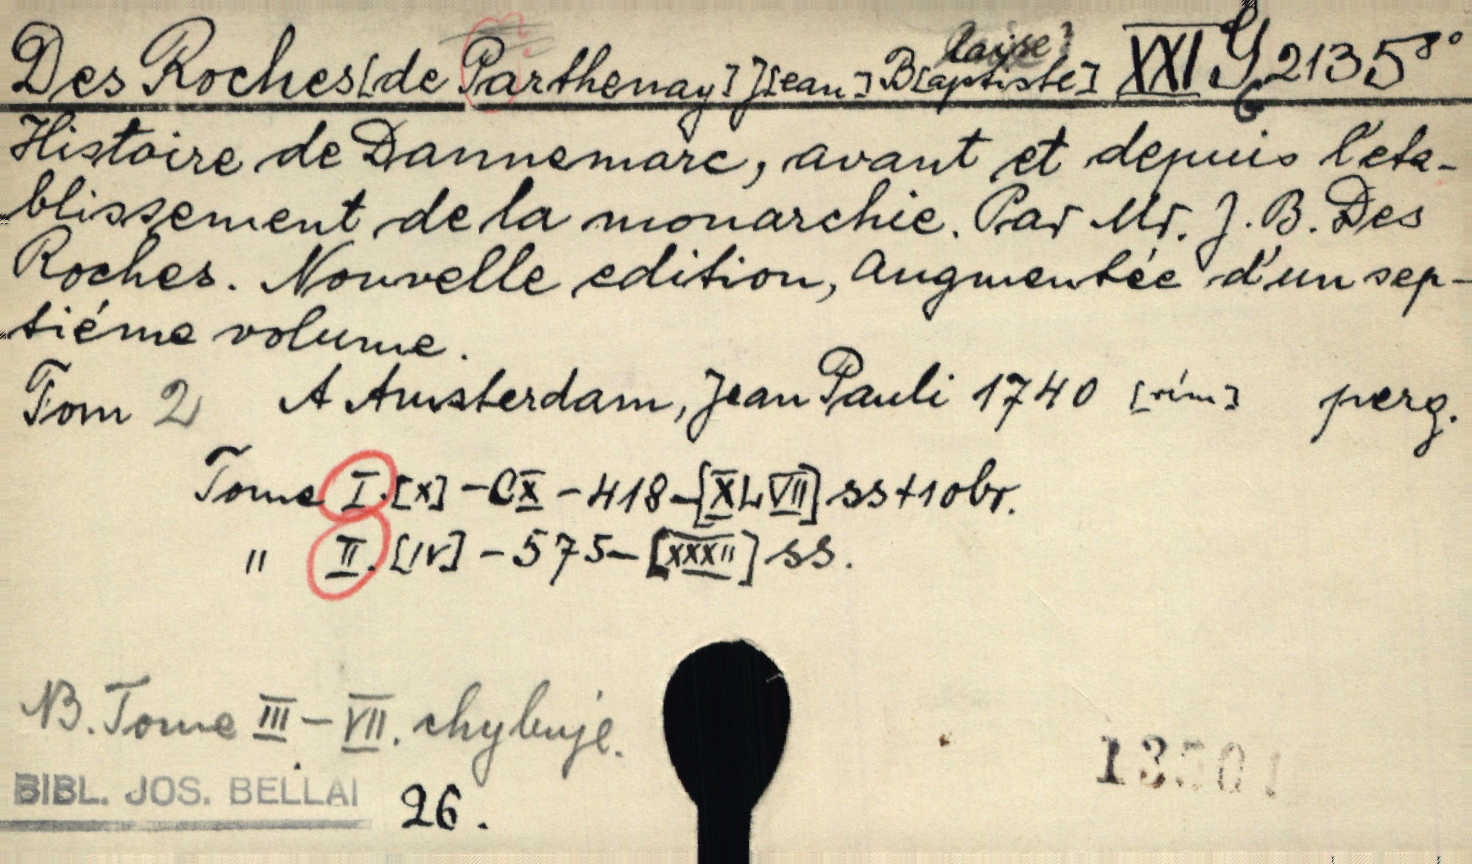 Des Roches [de Parthenay] J[ean] B[aptiste] laise? XXI G 2135 8°
Histoire de Dannemarc, avant et depuis l'eta-
blissement de la monarchie. Par Mr. J. B. Des
Roches. Nouvelle edition, augmentée d'un sep-
tiéme volume.
Tom 2 A Amsterdam, Jean Pauli 1740 [rím] perg.
Tome I. [X] - CX - 418 - [XLVII] ss + 1 obr.
" II. [IV] - 575 - [XXXII] ss.
NB. Tome III - VII. chybuje.
BIBL. JOS. BELLAI 26.
13501